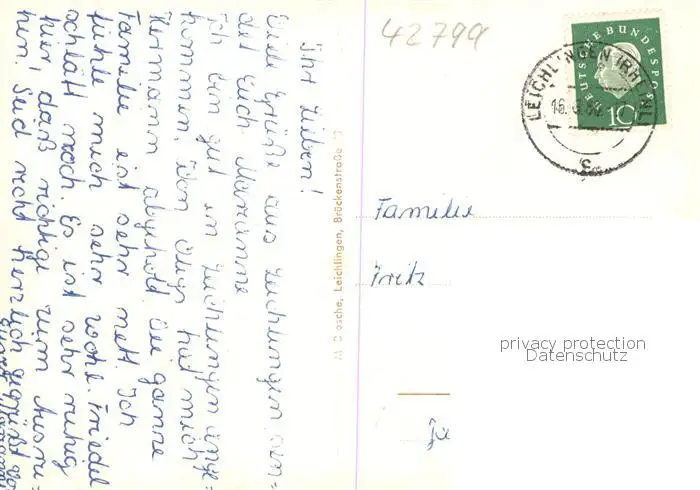 Ihr Lieben!
Viele Grüße aus Leichlingen sen=
det Euch Marianne
Ich bin gut in Leichlingen ange=
kommen, von hat mich
Hermann abgeholt. Die ganze
Familie ist sehr nett. Ich
fühle mich sehr wohl. Friedel
schläft noch. Es ist sehr ruhig
hier, daß richtige zum Ausru=
hen. Seid recht herzlich gegrüßt von
Eurer Marianne
Leichlingen, Brückenstraße
42799
DEUTSCHE BUNDESPOST
10
LEICHLINGEN (RHEINL)
16.
c
Familie
Fritz
privacy protection
Datenschutz